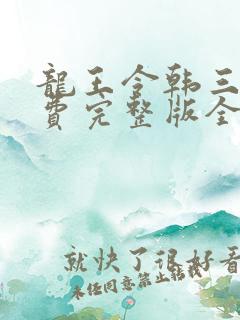 龍王令韩三
費完整版全
就快了很好看
未任同意禁止转载